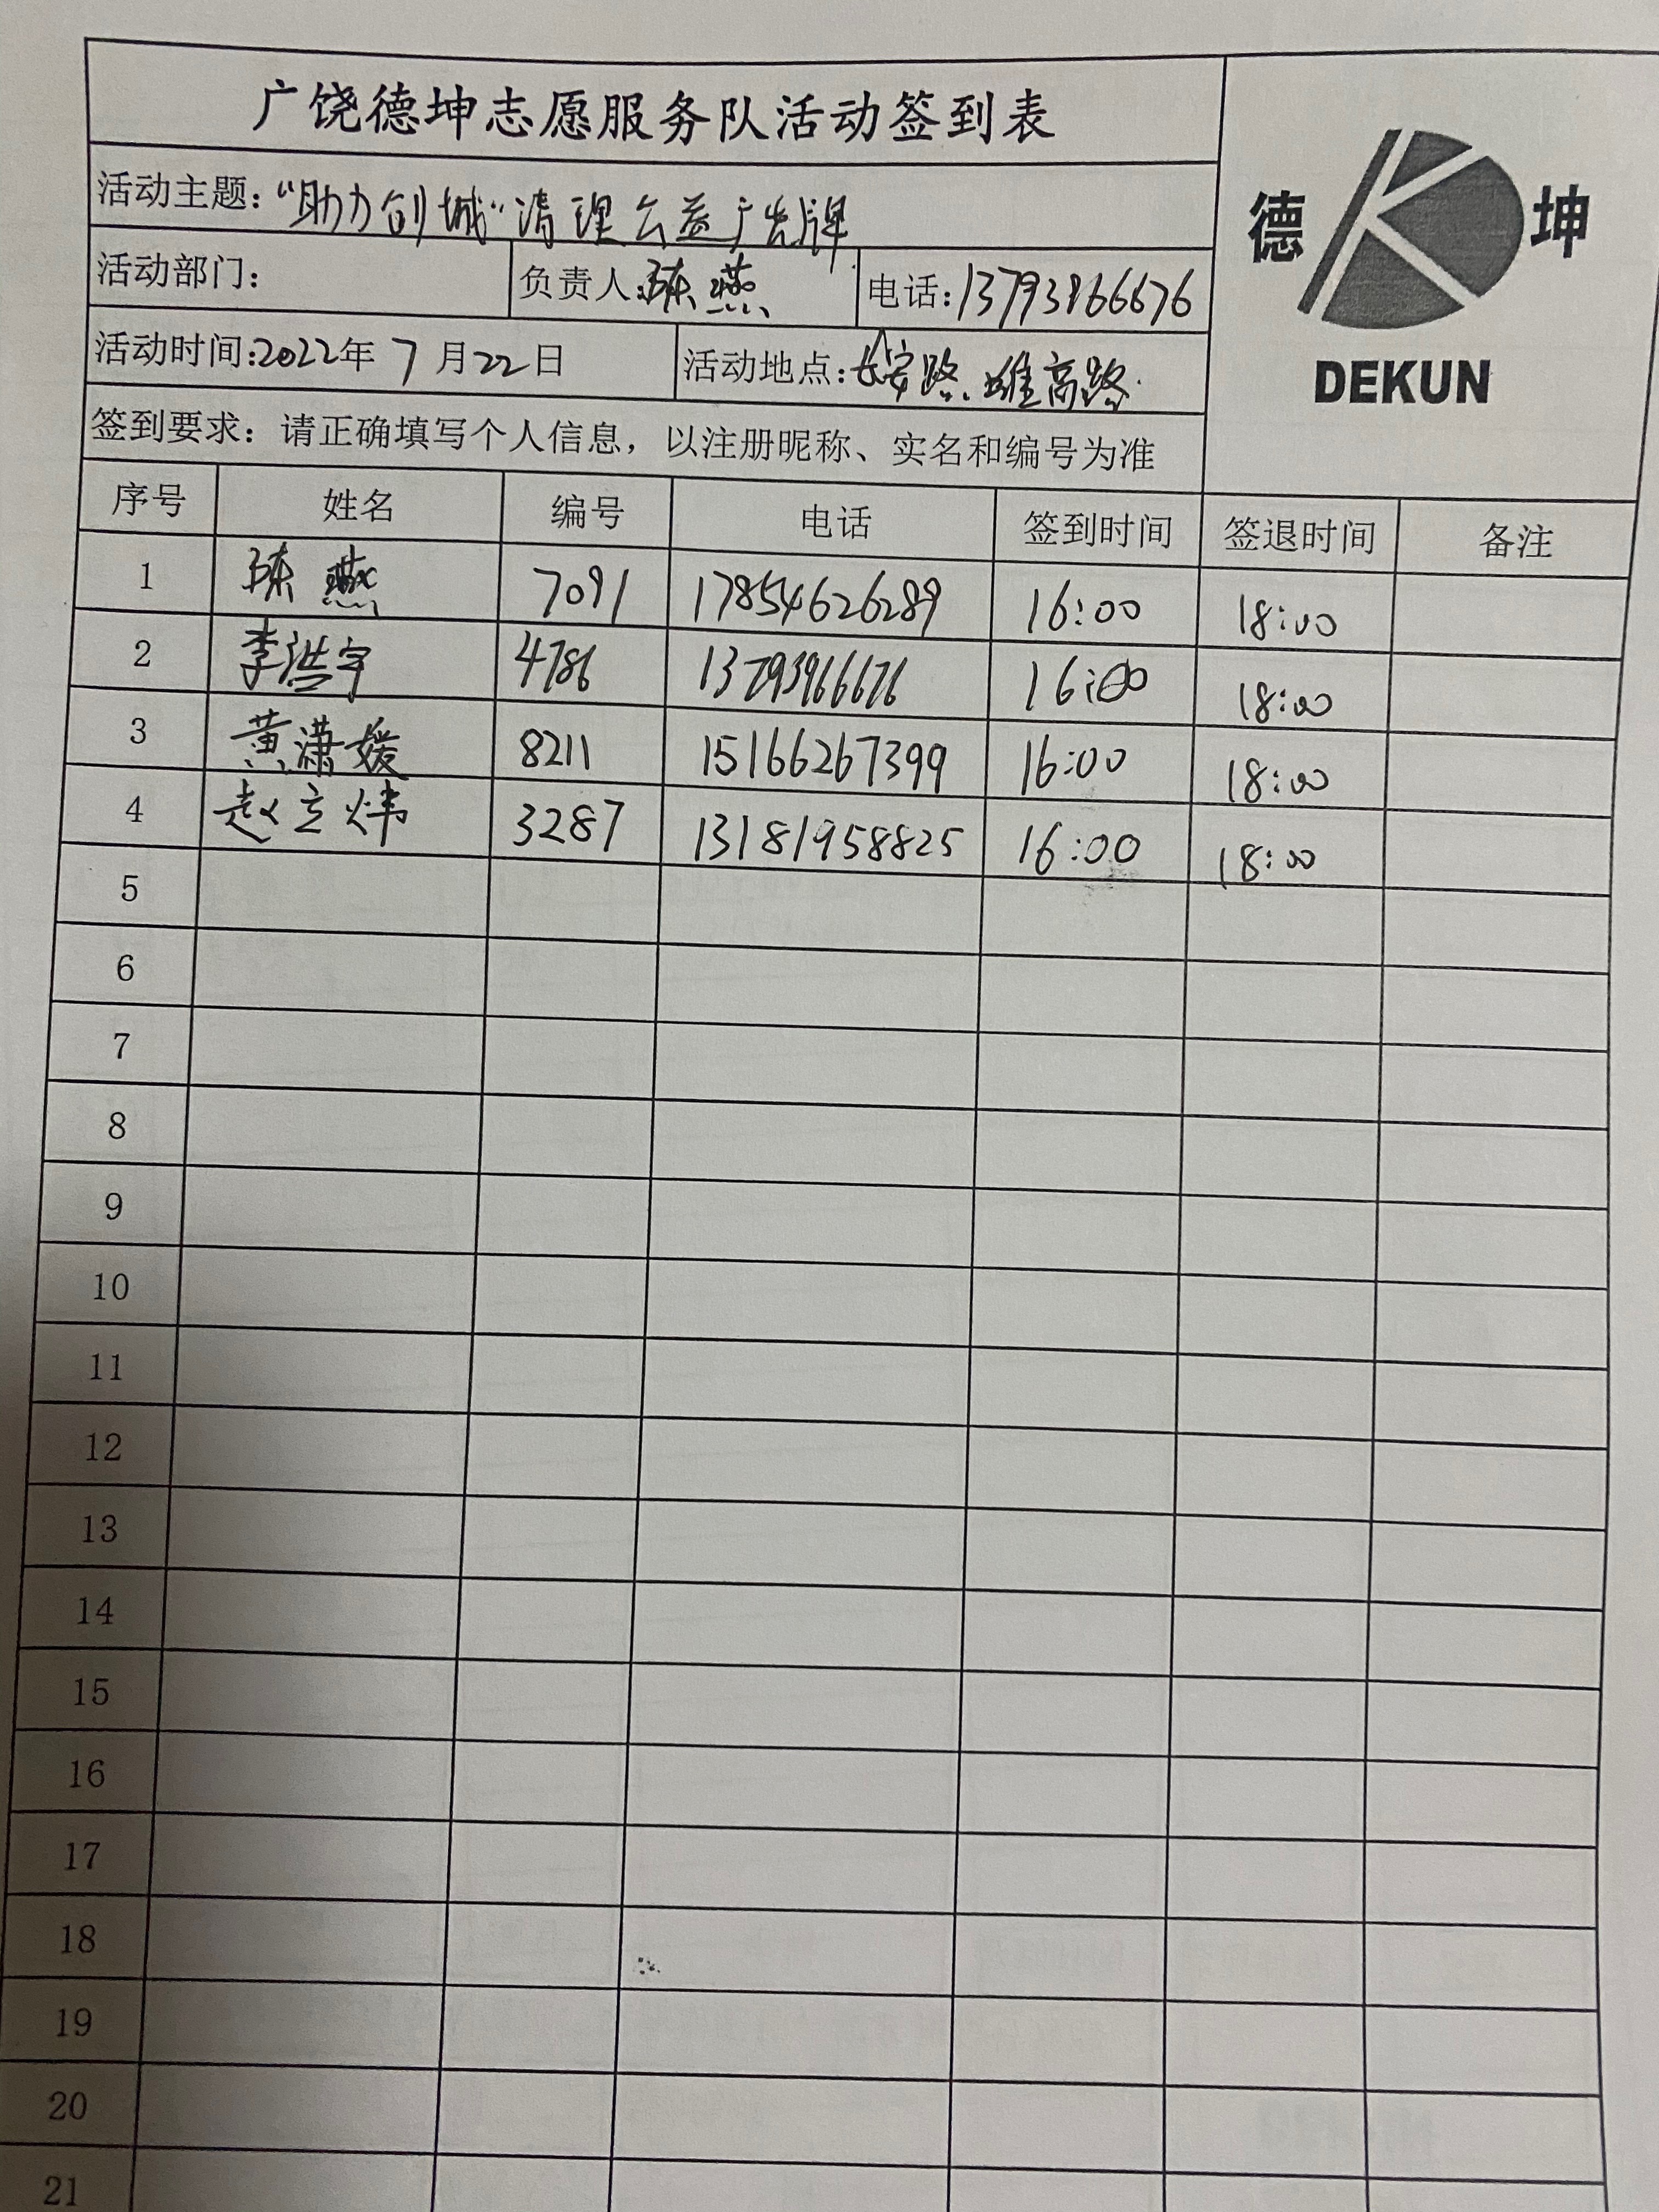 广饶德坤志愿服务队活动签到表
德 坤
DEKUN
活动主题：“助力创城”清理公益广告牌
活动部门： 负责人：陈燕 电话：13793966676
活动时间：2022年7月22日 活动地点：长安路、雄高路.
签到要求：请正确填写个人信息，以注册昵称、实名和编号为准
序号 姓名 编号 电话 签到时间 签退时间 备注
1 陈燕 7091 17854626289 16:00 18:00
2 李浩宇 4786 13793966676 16:00 18:00
3 黄潇媛 8211 15166267399 16:00 18:00
4 赵立炜 3287 13181958825 16:00 18:00
5
6
7
8
9
10
11
12
13
14
15
16
17
18
19
20
21